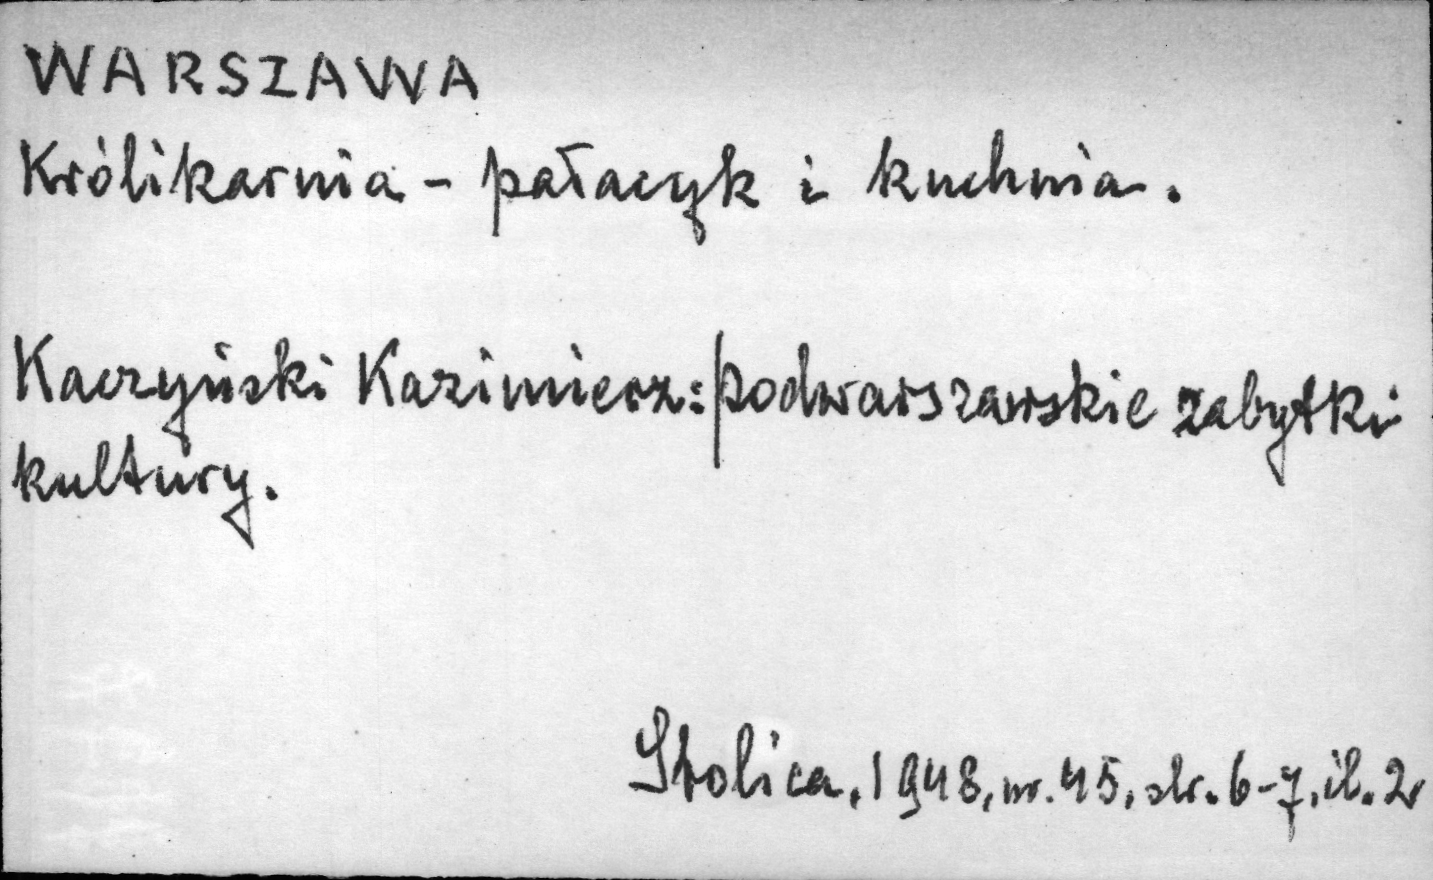 WARSZAWA
Królikarnia - pałacyk i kuchnia.
Kaczyński Kazimierz: Podwarszawskie zabytki
kultury.
Stolica, 1948, nr. 45, str. 6-7, il. 2